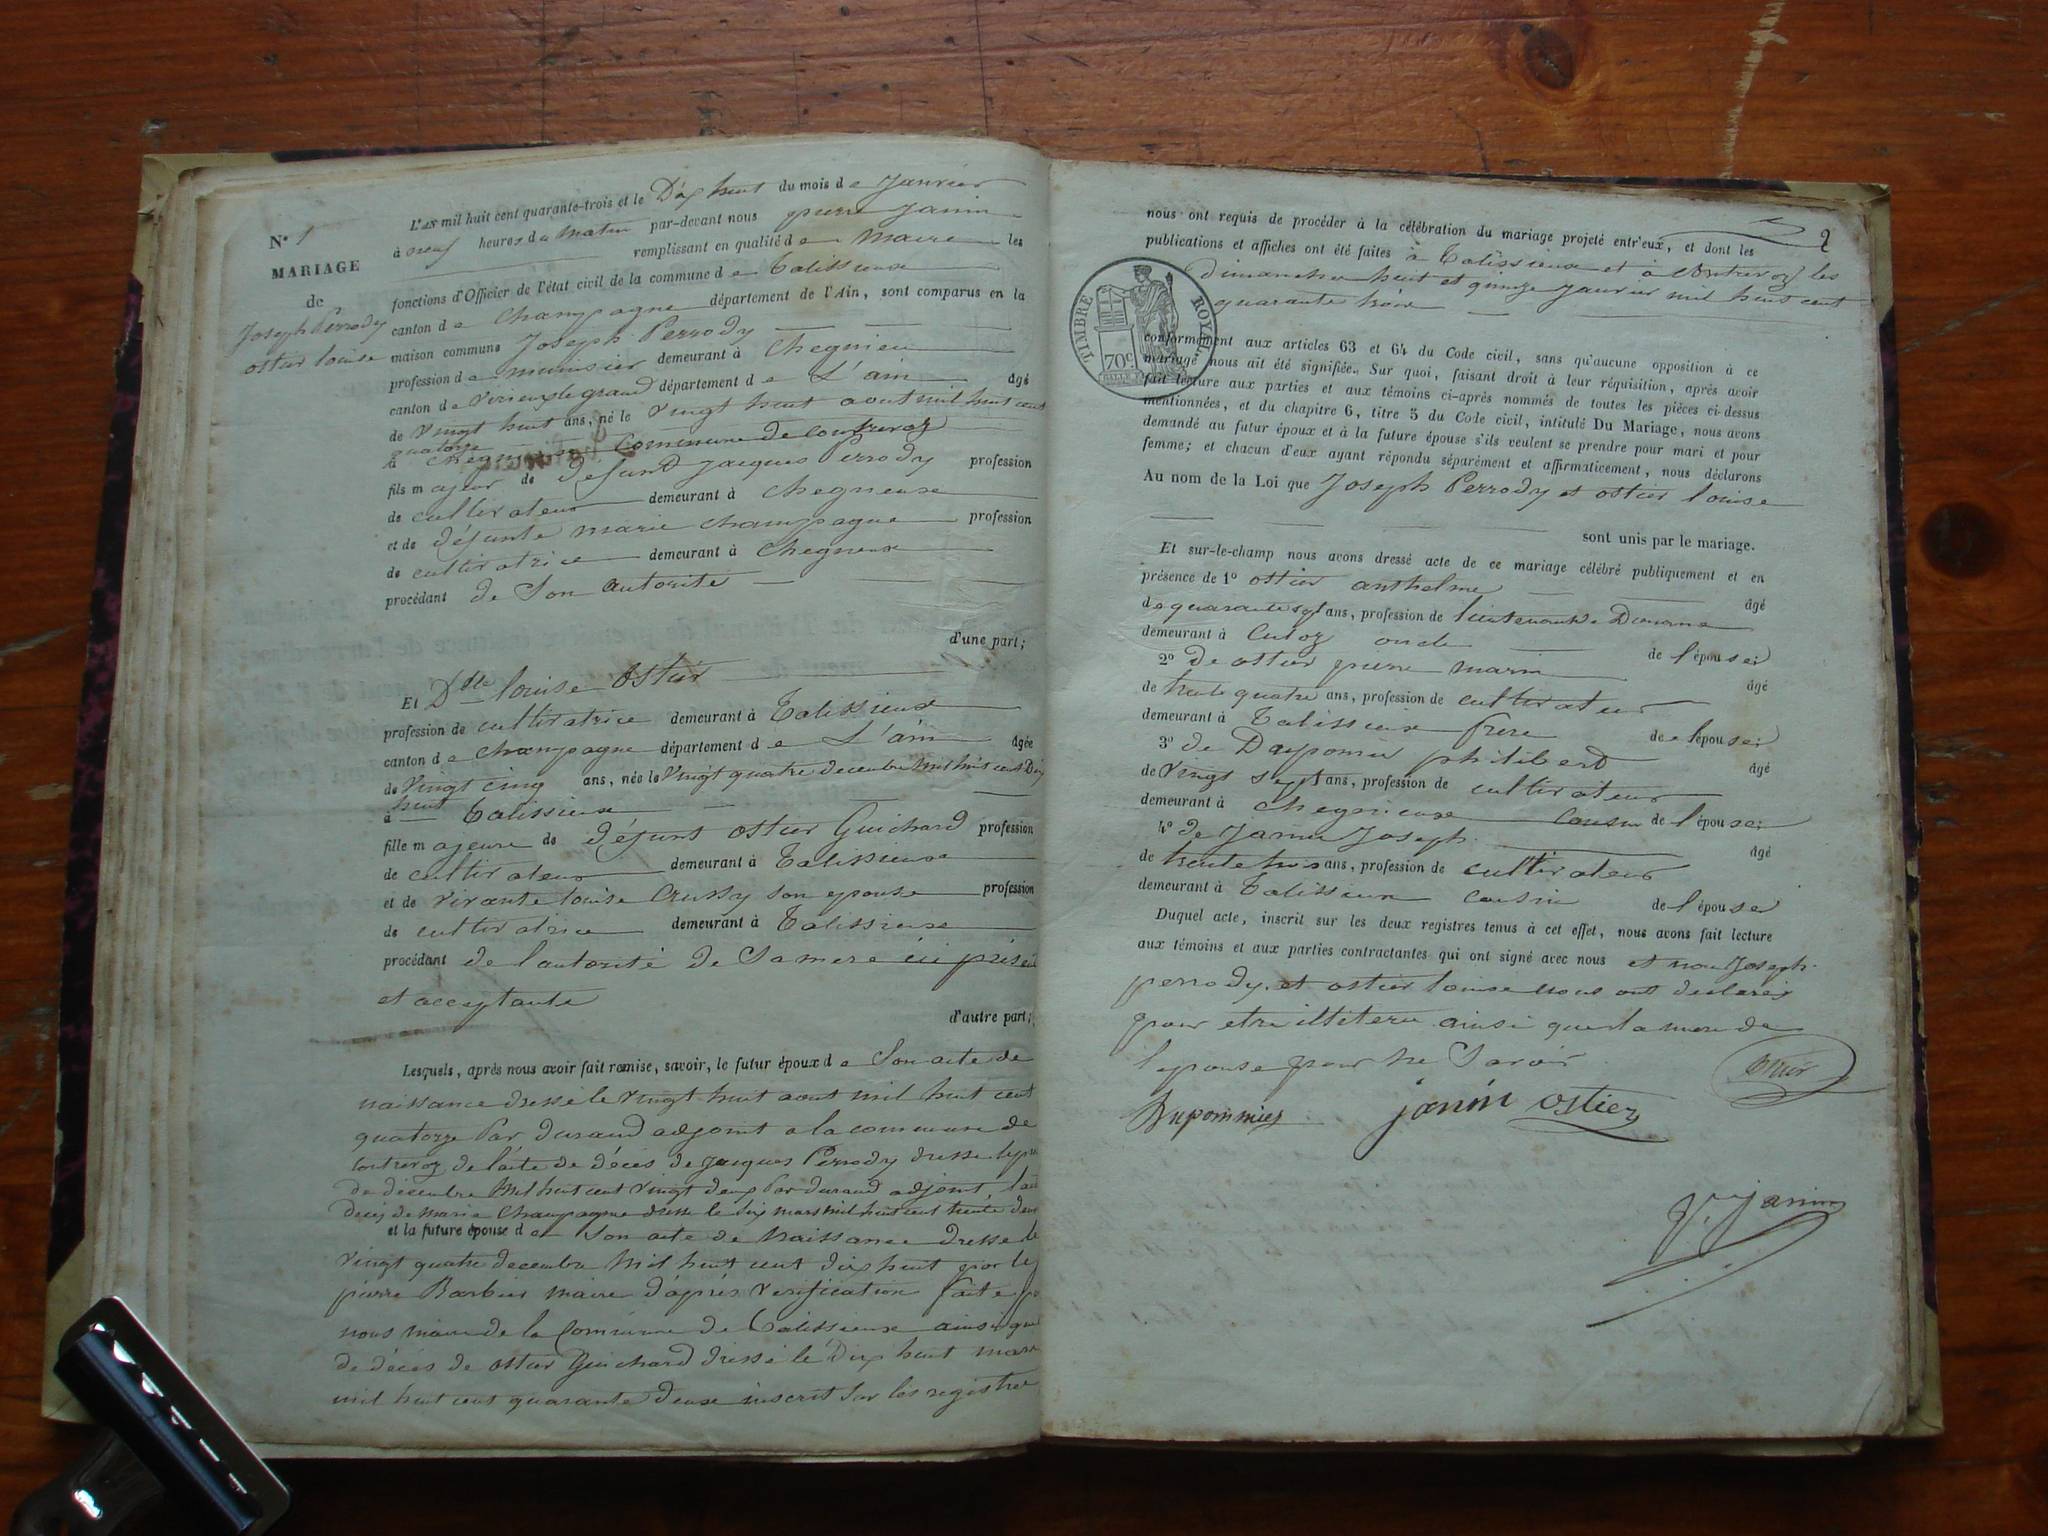 N° 1
MARIAGE
de
Joseph Perrody
ostier louise
L'AN mil huit cent quarante-trois et le Dix huit du mois de Janvier
à neuf heures du matin par-devant nous pierre Janin
remplissant en qualité de Maire les
fonctions d'Officier de l'état civil de la commune de talissieux
canton de Champagne département de l'Ain, sont comparus en la
maison commune Joseph Perrody
profession de meunier demeurant à Chegnieu
canton de Virieu le grand département de L'ain âgé
de Vingt huit ans, né le Vingt huit aout mil huit cent
quatorze
à Commune de Contrevoz
fils majeur de defunt Jacques Perrody profession
de cultivateur demeurant à Chegneux
et de défunte marie champagne profession
de cultivatrice demeurant à Chegneux
procédant de Son autorité
d'une part;
Et Dlle louise Ostier
profession de cultivatrice demeurant à Talissieux
canton de champagne département de L'ain âgée
de Vingt cinq ans, née le Vingt quatre decembre mil huit cent Dix
huit
à Talissieux
fille majeure de défunt Ostier Guichard profession
de cultivateur demeurant à Talissieux
et de vivante louise Crussy son epouse profession
de cultivatrice demeurant à Talissieux
procédant de l'autorité de Sa mere ici présente
et acceptante
d'autre part;
Lesquels, après nous avoir fait remise, savoir, le futur époux de Son acte de
naissance dressé le vingt huit aout mil huit cent
quatorze Par Durand adjoint a la commune de
Contrevoz de l'acte de décès de Jacques Perrody dressé le
de décembre Mil huit cent vingt deux Par durand adjoint
décès de Marie Champagne dressé le Six mars mil huit cent trente deux
et la future épouse de Son acte de Naissance dressé le
Vingt quatre decembre Mil huit cent dix huit par le
pierre Barbier maire d'après Verification faite
nous maire de la Commune de Talissieux ainsi que
de décès de ostier Guichard dressé le Dix huit mars
mil huit cent quarante deux inscrit sur les registres
2
nous ont requis de procéder à la célébration du mariage projeté entr'eux, et dont les
publications et affiches ont été faites à Talissieux et à Contrevoz les
dimanches huit et quinze janvier mil huit cent
quarante trois
TIMBRE ROYAL
70c
conformément aux articles 63 et 64 du Code civil, sans qu'aucune opposition à ce
mariage nous ait été signifiée. Sur quoi, faisant droit à leur réquisition, après avoir
fait lecture aux parties et aux témoins ci-après nommés de toutes les pièces ci-dessus
mentionnées, et du chapitre 6, titre 5 du Code civil, intitulé Du Mariage, nous avons
demandé au futur époux et à la future épouse s'ils veulent se prendre pour mari et pour
femme; et chacun d'eux ayant répondu séparément et affirmativement, nous déclarons
Au nom de la Loi que Joseph Perrody et ostier louise
sont unis par le mariage.
Et sur-le-champ nous avons dressé acte de ce mariage célébré publiquement et en
présence de 1° ostier anthelme âgé
de quarante sept ans, profession de lieutenant de Douane
demeurant à Culoz oncle de l'épouse
2° de ostier pierre marin âgé
de trente quatre ans, profession de cultivateur
demeurant à Talissieux frere de l'épouse
3° de Dupomier philibert âgé
de Vingt sept ans, profession de cultivateur
demeurant à Chegnieux Cousin de l'épouse
4° de Janin Joseph âgé
de trente trois ans, profession de cultivateur
demeurant à Talissieux cousin de l'épouse
Duquel acte, inscrit sur les deux registres tenus à cet effet, nous avons fait lecture
aux témoins et aux parties contractantes qui ont signé avec nous et non Joseph
perrody et ostier louise nous ont declarés
pour etre illiterés ainsi que la mere de
l epouse pour ne Savoir
Dupommier janin ostier ostier
Janin